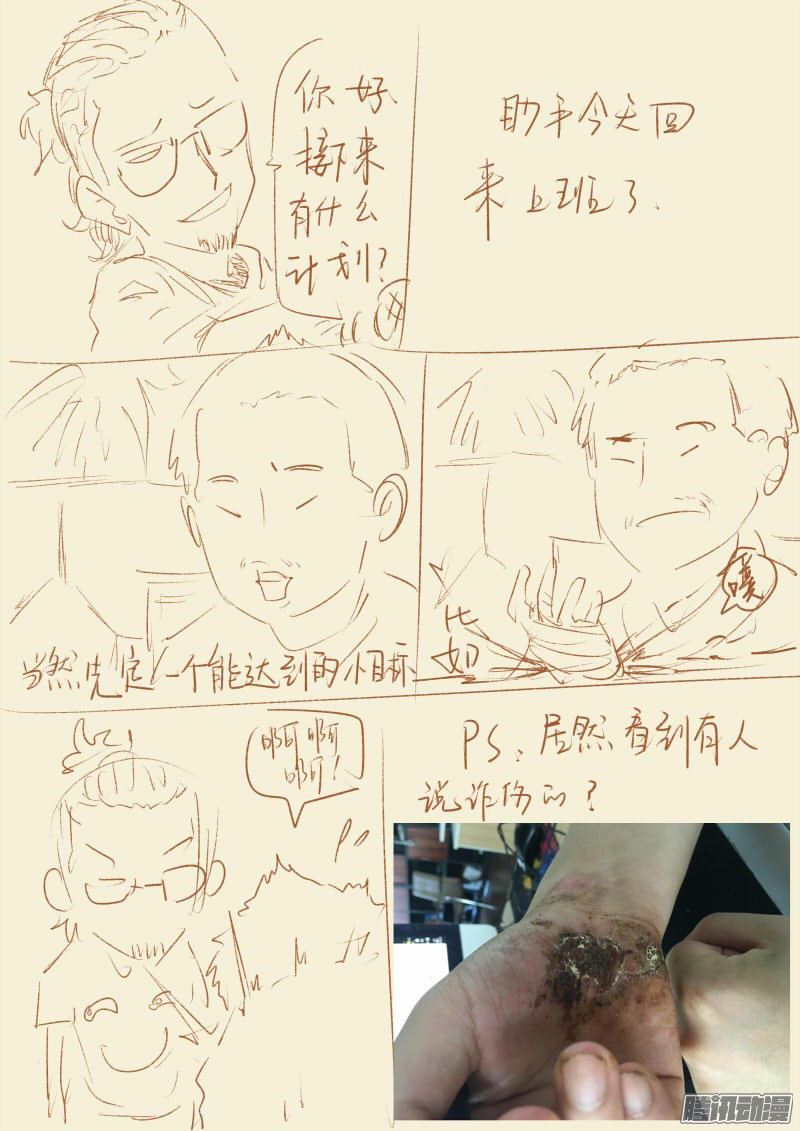 你好
接下来
有什么
计划?
助手今天回
来上班了.
当然先定一个能达到的小目标
比
如
噗
啊啊
啊!
PS:居然看到有人
说诈伤的?
腾讯动漫